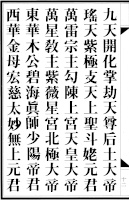 九天開化掌劫天尊后土大帝
瑤天紫極支天上聖斗姥元君
萬雷宗主勾陳上宮天皇大帝
萬星教主紫薇星宮北極大帝
東華木公碧海眞師少陽帝君
西華金母宏慈太妙無上元君